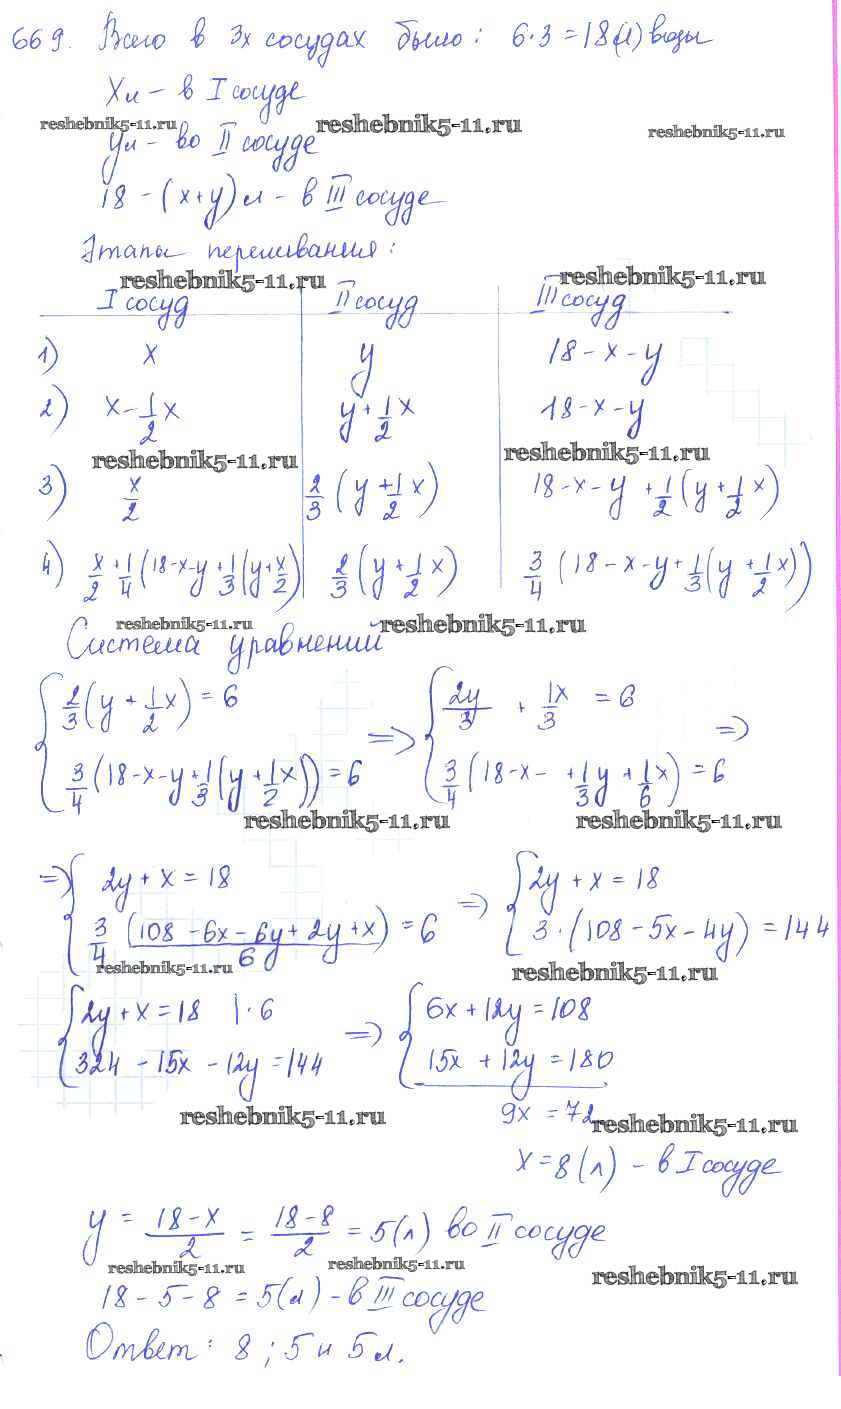 669. Всего в 3х сосудах было: 6·3=18(л) воды
Xл – в I сосуде
reshebnik5-11.ru reshebnik5-11.ru reshebnik5-11.ru
Yл – во II сосуде
18-(x+y)л – в III сосуде
Этапы переливания:
reshebnik5-11.ru reshebnik5-11.ru
I сосуд II сосуд III сосуд
1) x y 18-x-y
2) x-1/2x y+1/2x 18-x-y
reshebnik5-11.ru reshebnik5-11.ru
3) x/2 2/3(y+1/2x) 18-x-y+1/2(y+1/2x)
4) x/2+1/4(18-x-y+1/3(y+x/2) 2/3(y+1/2x) 3/4(18-x-y+1/3(y+1/2x))
reshebnik5-11.ru reshebnik5-11.ru
Система уравнений
{2/3(y+1/2x)=6 {2y/3+1x/3=6
3/4(18-x-y+1/3(y+1/2x))=6 => 3/4(18-x-+1/3y+1/6x)=6 =>
reshebnik5-11.ru reshebnik5-11.ru
=> {2y+x=18 => {2y+x=18
3/4(108-6x-6y+2y+x)/6=6 3·(108-5x-4y)=144
reshebnik5-11.ru reshebnik5-11.ru
{2y+x=18 |·6 => {6x+12y=108
324-15x-12y=144 15x+12y=180
reshebnik5-11.ru 9x=72 reshebnik5-11.ru
x=8(л) – в I сосуде
y=(18-x)/2=(18-8)/2=5(л) во II сосуде
reshebnik5-11.ru reshebnik5-11.ru reshebnik5-11.ru
18-5-8=5(л) – в III сосуде
Ответ: 8; 5 и 5л.